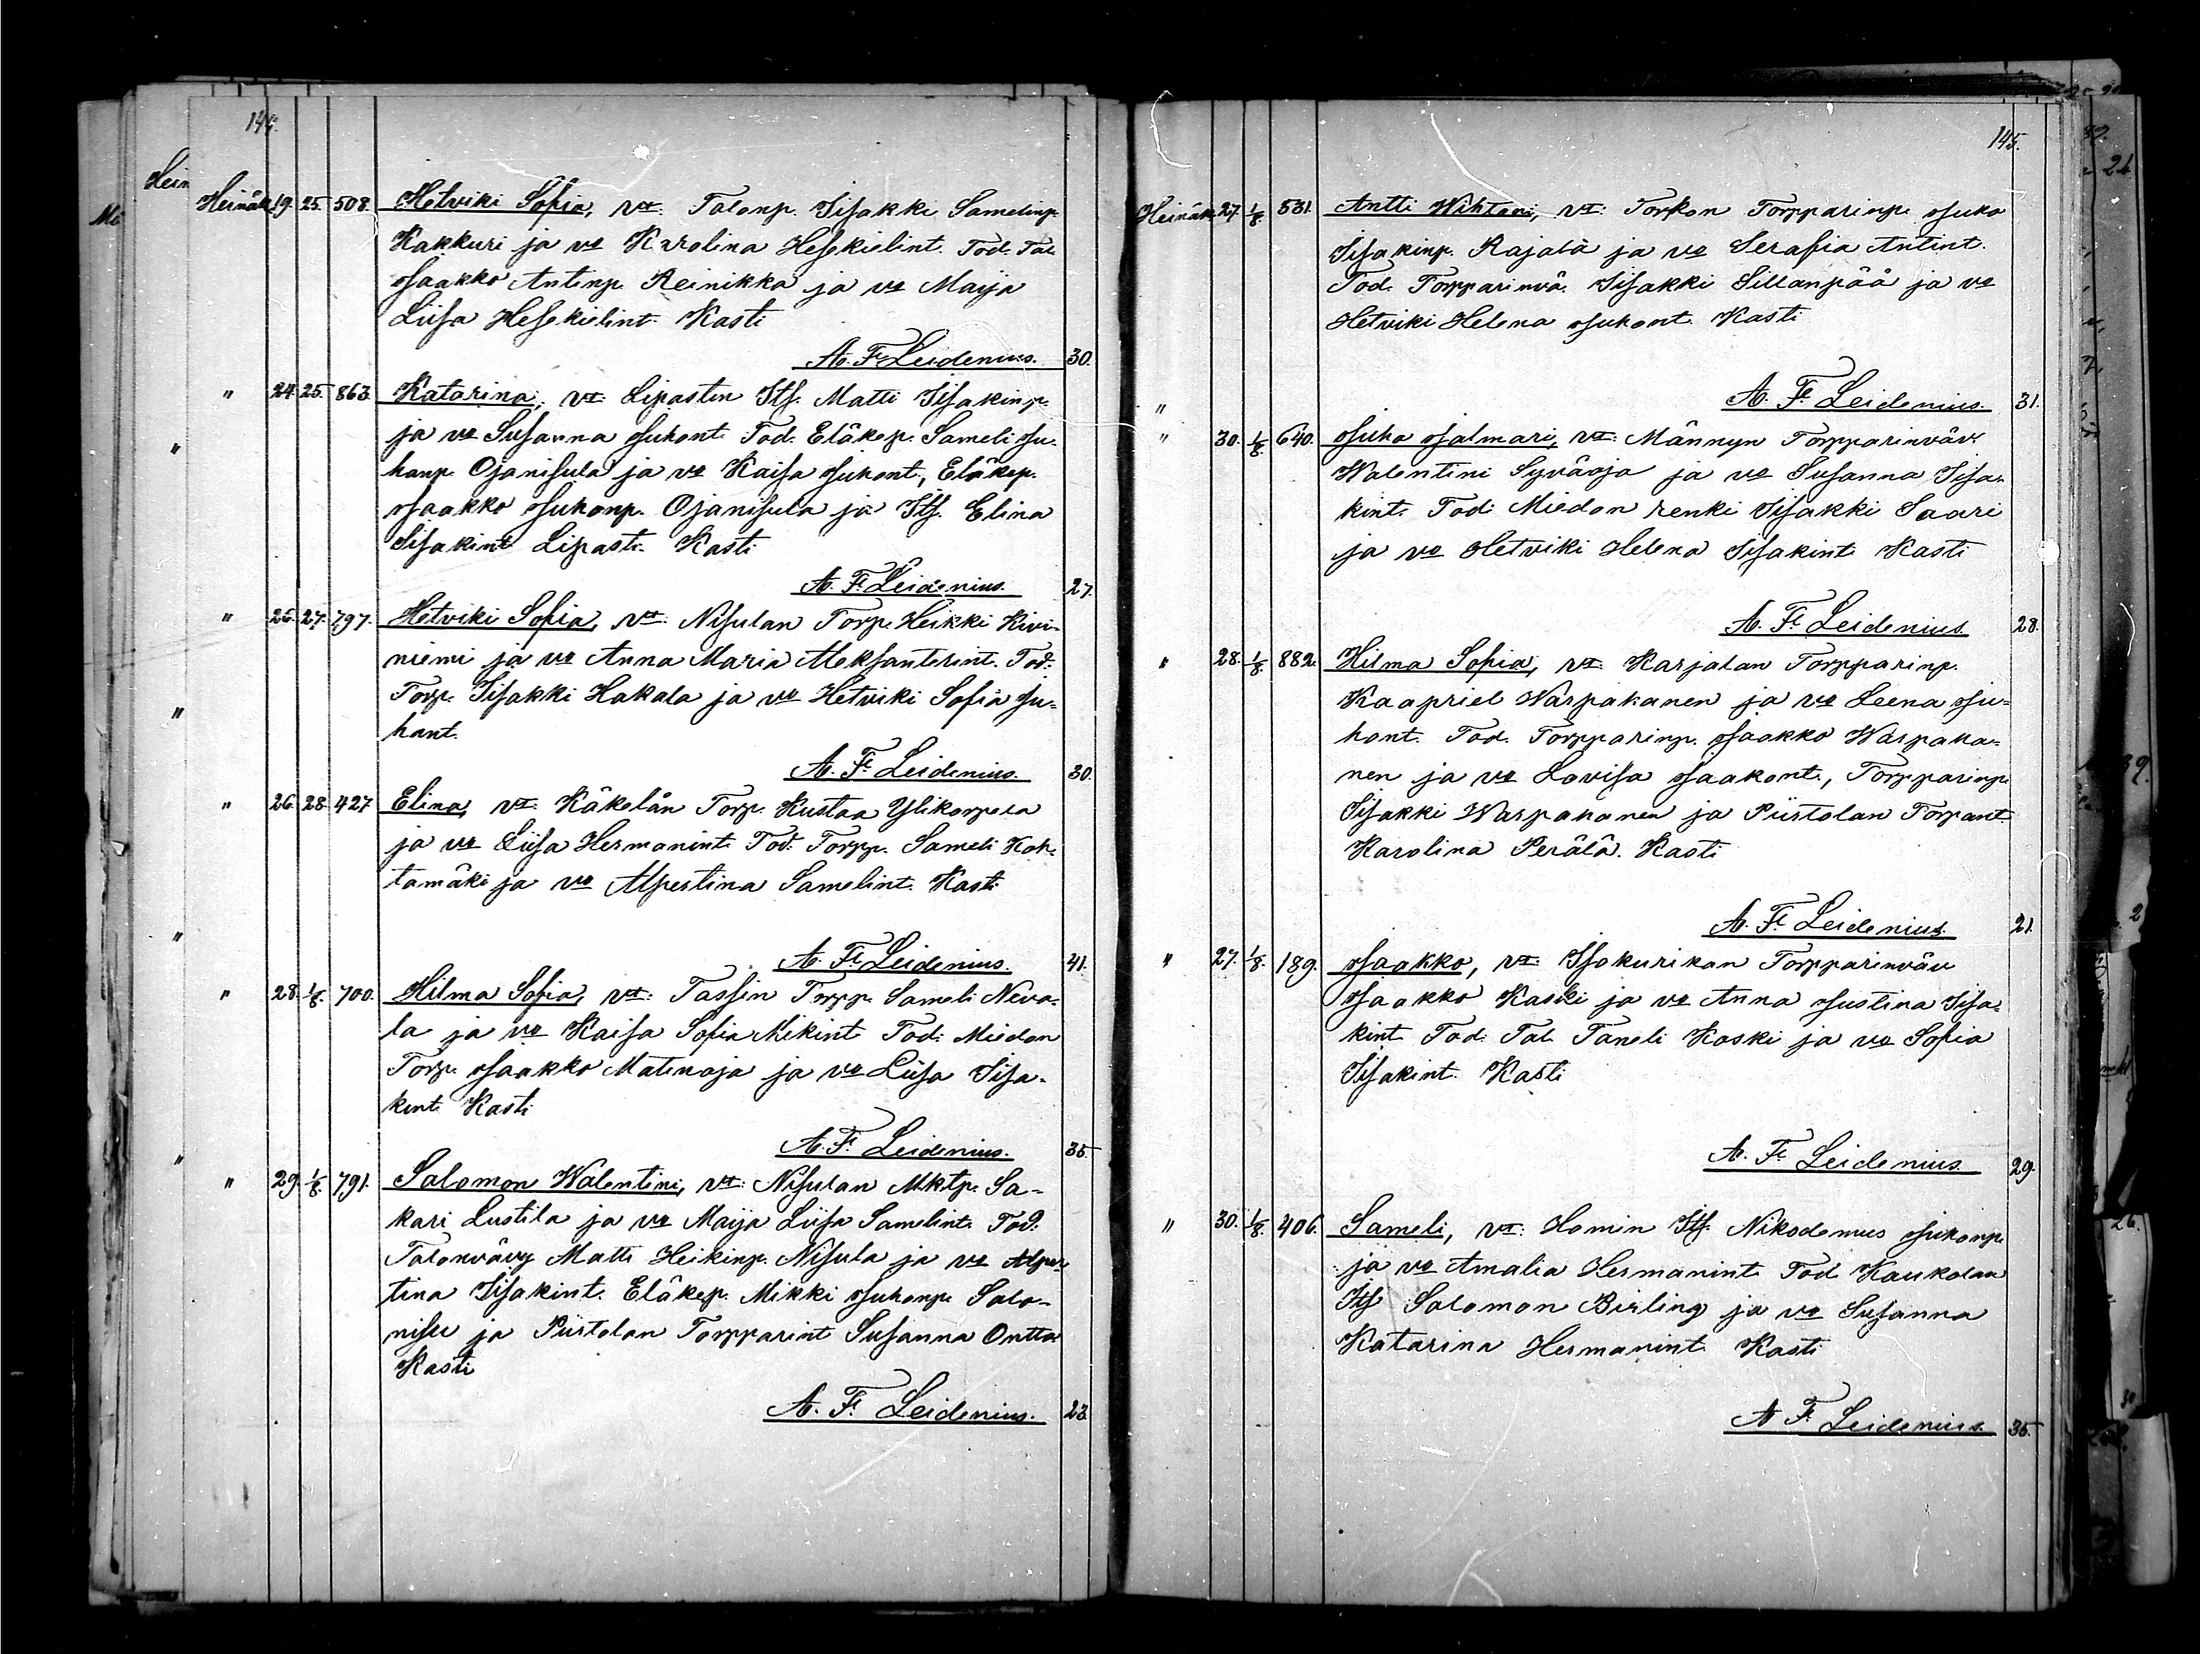 144.
Heinäk. 19. 25. 508. Hetviki Sofia, vt: Talonp. Iisakki Samelinp.
Kakkuri ja vo Karolina Hesekielint. Tod. Tal.
Jaakko Antinp. Reinikka ja vo Maija
Liisa Hesekielint. Kasti
A. F. Leidenius. 30.
" 24. 25. 863. Katarina, vt: Lipastin Its. Matti Iisakinp.
ja vo Susanna Juhont. Tod. Eläkep. Sameli Ju-
hanp. Ojanisula ja vo Kaisa Juhont., Eläkep.
Jaakko Juhonp. Ojanisula ja Its. Elina
Iisakint Lipasti. Kasti
A. F. Leidenius. 27.
" 26. 27. 797. Hetviki Sofia, vt: Nisulan Torp. Heikki Kivi-
niemi ja vo Anna Maria Aleksanterint. Tod.
Torp. Iisakki Hakala ja vo Hetviki Sofia Ju-
hant.
A. F. Leidenius. 30.
" 26. 28. 427. Elina, vt: Käkelän Torp. Kustaa Ylikorpela
ja vo Liisa Hermanint. Tod. Torpp. Sameli Koh-
tamäki ja vo Alpertina Samelint. Kasti
A. F. Leidenius. 41.
" 28. 1/8. 700. Hilma Sofia, vt: Tassin Torpp. Sameli Neva-
la ja vo Kaisa Sofia Mikint Tod: Miedon
Torp. Jaakko Matinoja ja vo Liisa Iisa-
kint. Kasti
A. F. Leidenius. 35.
" 29. 1/8. 791. Salomon Walentini, vt: Nisulan Mktp. Sa-
kari Lustila ja vo Maija Liisa Samelint. Tod.
Talonvävy Matti Heikinp. Nisula ja vo Alper-
tina Iisakint. Eläkep. Mikki Juhonp. Salo-
nisu ja Piirtolan Torpparint Susanna Ontto
Kasti
A. F. Leidenius. 23.
145.
Heinäk. 27. 1/8. 531. Antti Wihtori, vt: Torkon Torpparinp. Juho
Iisakinp. Rajala ja vo Serafia Antint.
Tod. Torpparinvä. Iisakki Sillanpää ja vo
Hetviki Helena Juhont. Kasti
A. F. Leidenius. 31.
" 30. 1/8. 640. Juho Jalmari, vt: Männyn Torpparinväv.
Walentini Syväoja ja vo Susanna Iisa-
kint. Tod: Miedon renki Iisakki Saari
ja vo Hetviki Helena Iisakint. Kasti
A. F. Leidenius. 28.
" 28. 1/8. 882. Hilma Sofia, vt: Karjalan Torpparinp.
Kaapriel Warpakanen ja vo Leena Ju-
hont. Tod. Torpparinp. Jaakko Warpaka-
nen ja vo Lovisa Jaakont., Torpparinp.
Iisakki Warpakanen ja Piirtolan Torpant.
Karolina Perälä. Kasti
A. F. Leidenius. 21.
" 27. 1/8. 189. Jaakko, vt: Isokurikan Torpparinväv
Jaakko Koski ja vo Anna Justina Iisa-
kint Tod. Tal. Taneli Koski ja vo Sofia
Iisakint. Kasti
A. F. Leidenius. 29.
" 30. 1/8. 406. Sameli, vt: Homin Its. Nikodemus Juhonp.
ja vo Amalia Hermanint. Tod Kaukolan
Its Salomon Birling ja vo Susanna
Katarina Hermanint. Kasti
A. F. Leidenius. 35.